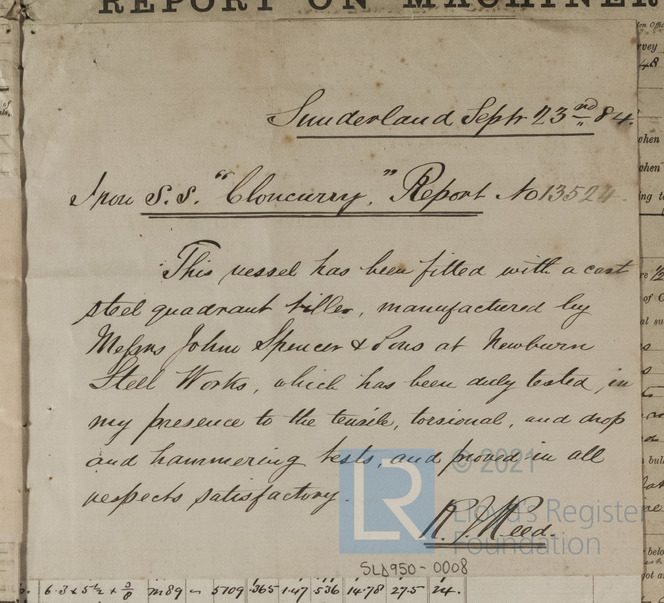 REPORT ON MACHINER
Sunderland Septr 23rd 84.
Iron S.S. "Cloncurry," Report No 13524
This vessel has been fitted with a cast
steel quadrant tiller, manufactured by
Messrs John Spencer & Sons at Newburn
Steel Works, which has been duly tested in
my presence to the tensile, torsional, and drop
and hammering tests, and proved in all
respects satisfactory.
R. J. Reed.
© 2021
Lloyd's Register
Foundation
LR
SLD950-0008
6·3 x 5½ x 3/8 m89 5109 ·365 1·47 536 14·78 27·5 24.